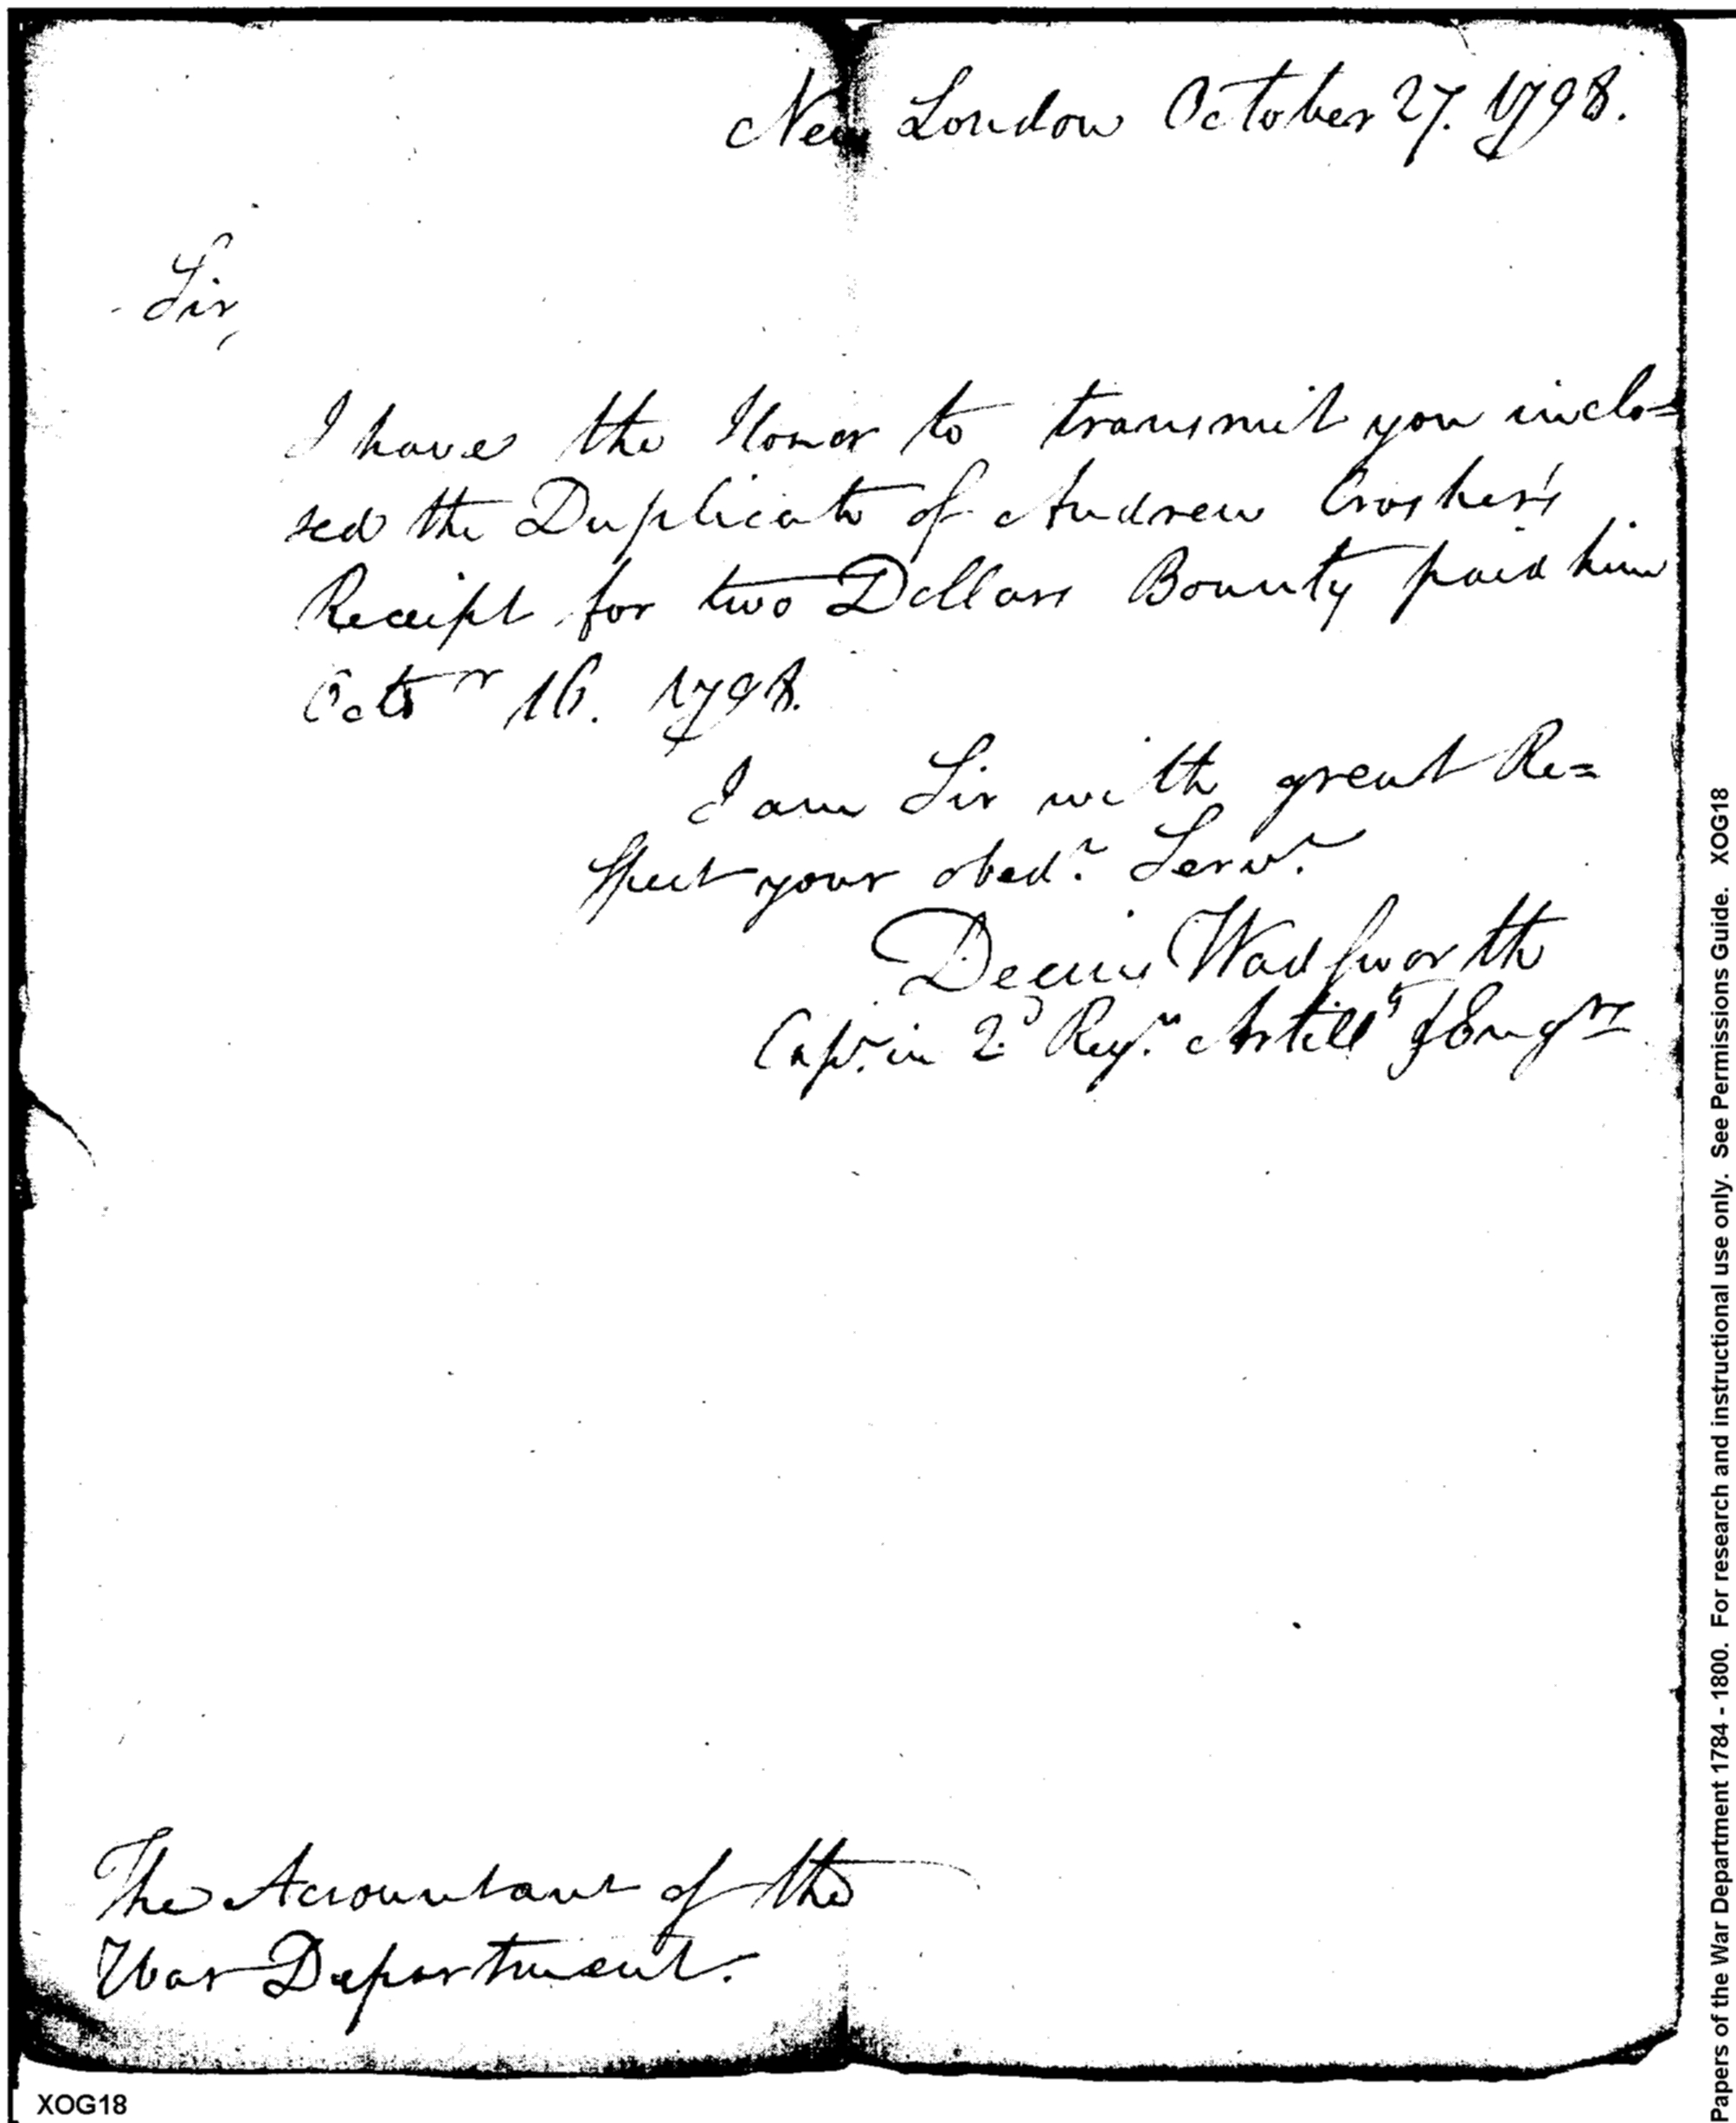 New London October 27. 1798.
Sir,
I have the Honor to transmit you inclo=
sed the Duplicate of Andrew Crosher's
Receipt for two Dollars Bounty paid him
Octo r 16. 1798.
I am Sir with great Re=
spect your obed.t Serv.t
Decius Wadsworth
Capt. in 2.d Reg.t Artill.y & Eng.rs
The Accountant of the
War Department.
XOG18
Papers of the War Department 1784 - 1800. For research and instructional use only. See Permissions Guide. XOG18